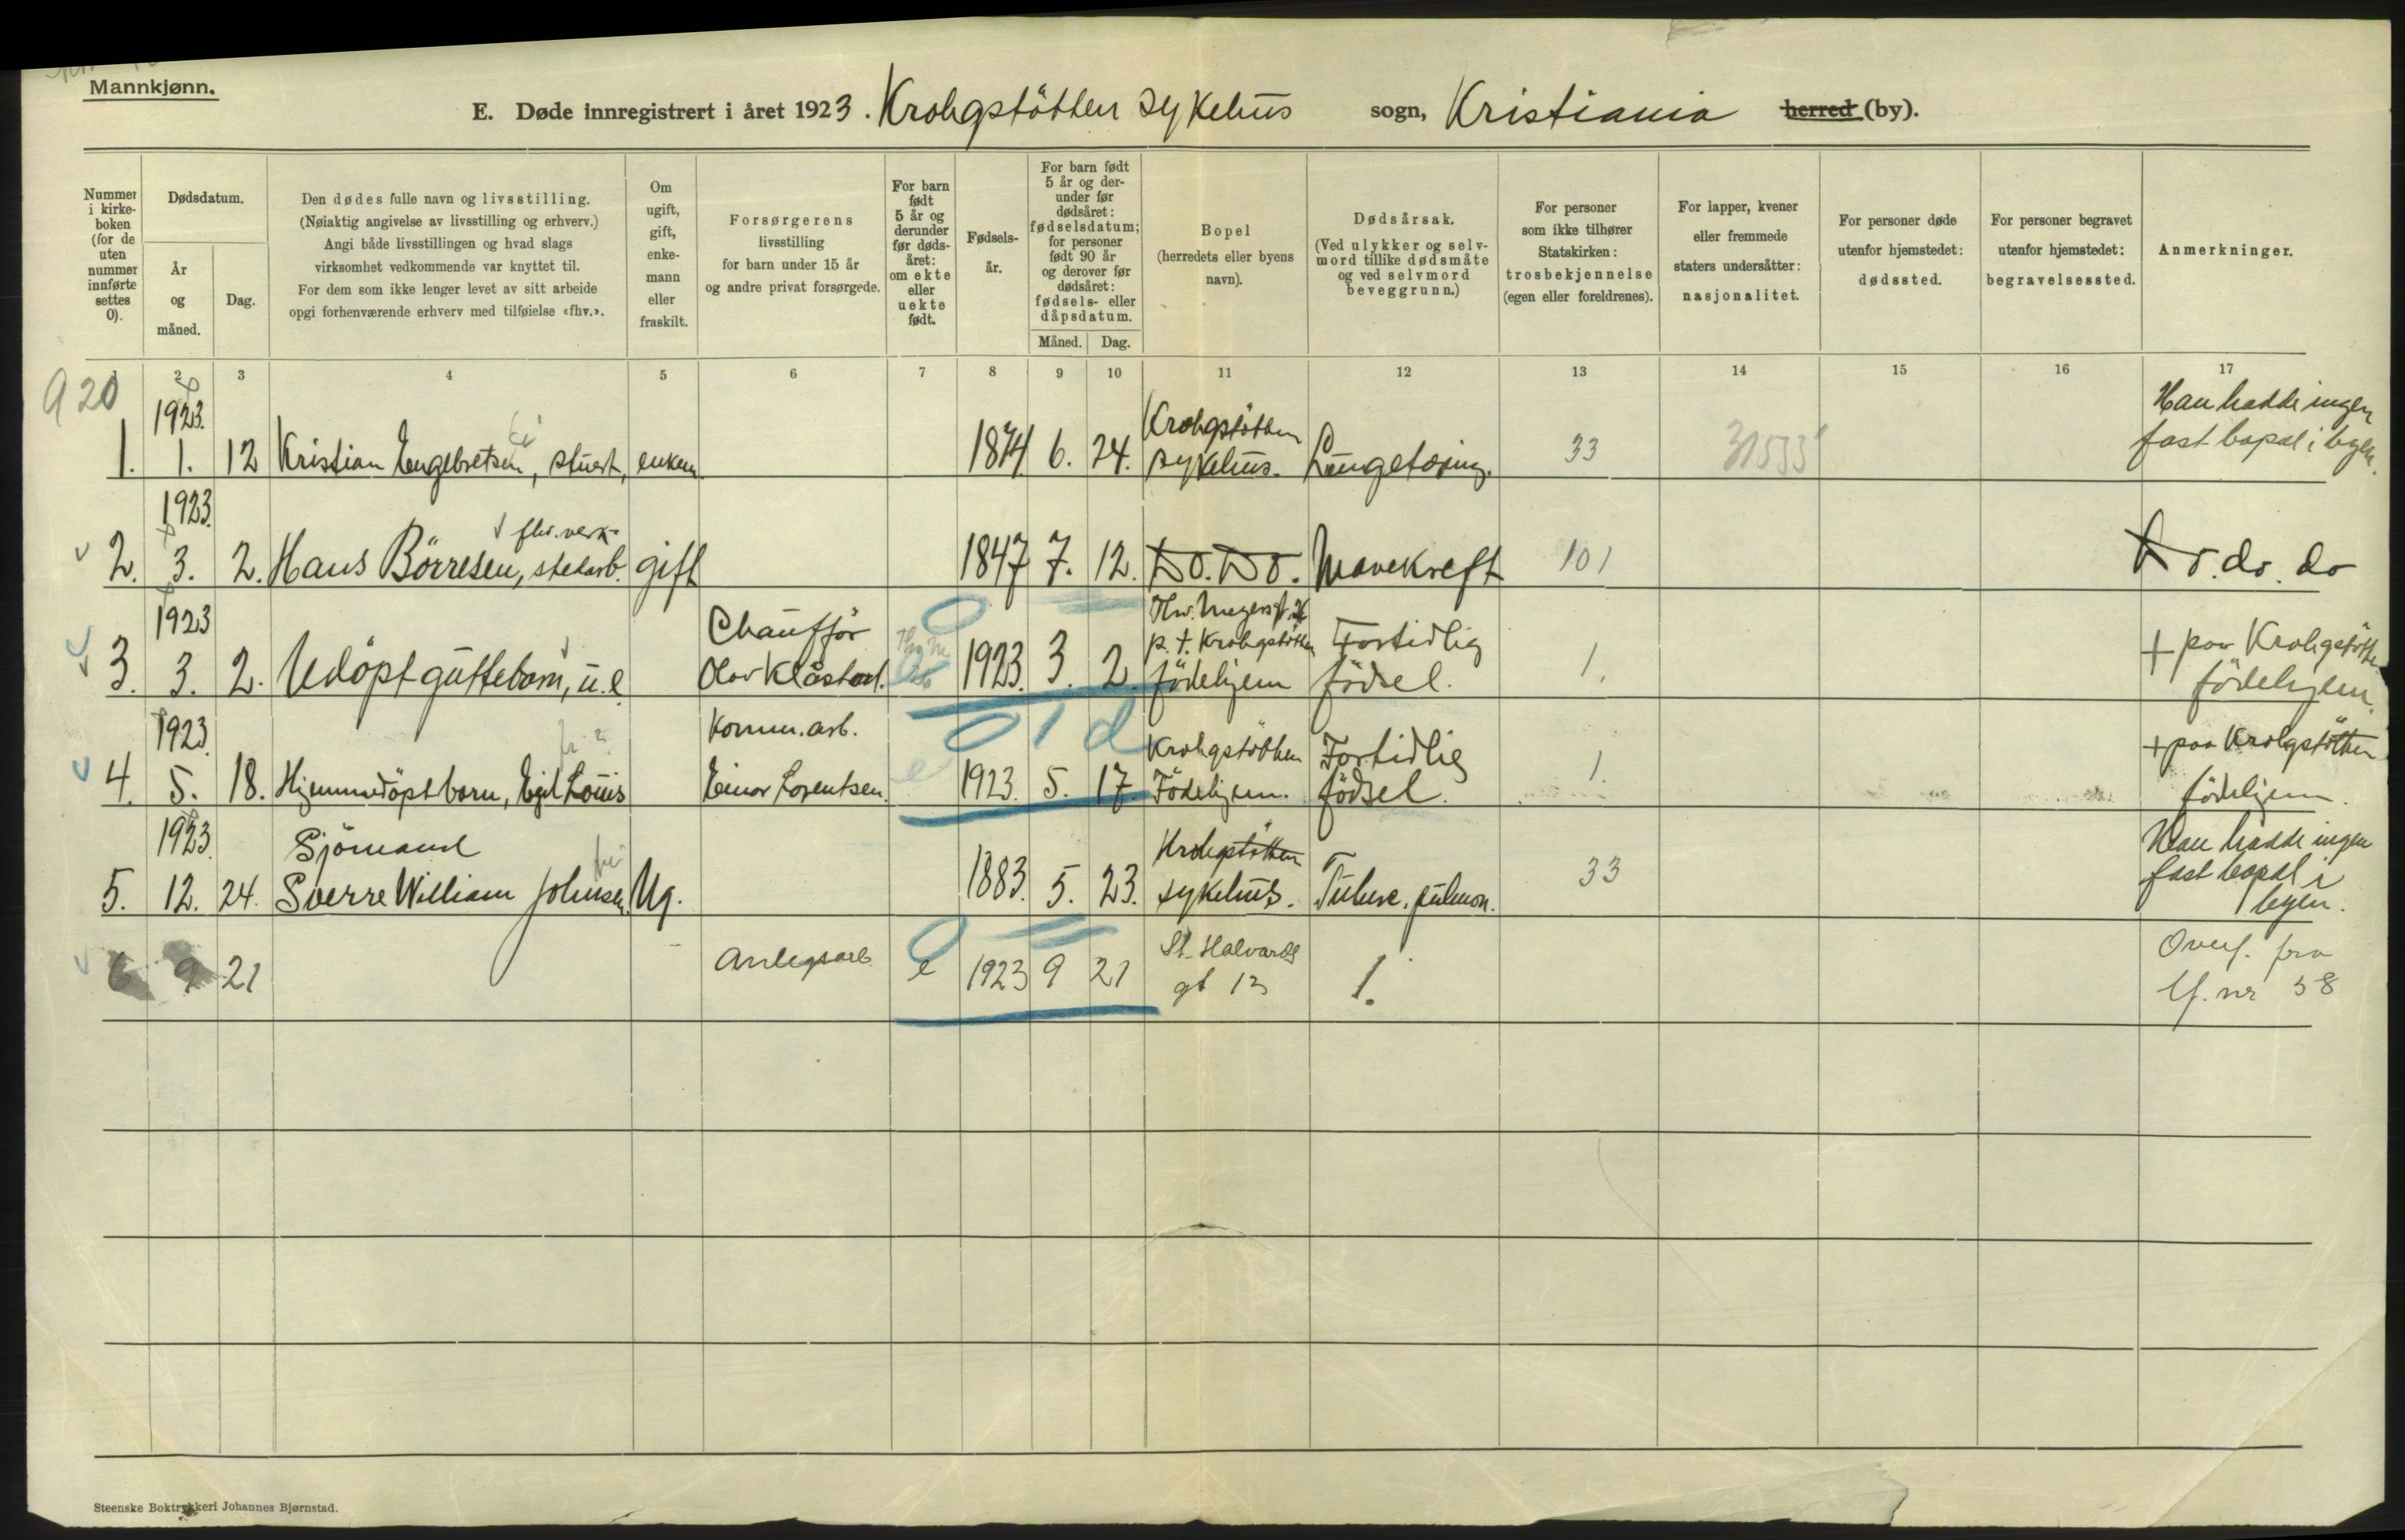 Mannkjønn.
E. Døde innregistrert i året 1923. Krohgstötten sykehus sogn, Kristiania herred (by).
Nummer i kirke-boken (for de uten nummer innførte settes 0).
Dødsdatum.
År og måned.
Dag.
Den dødes fulle navn og livsstilling.
(Nøiaktig angivelse av livsstilling og erhverv.)
Angi både livsstillingen og hvad slags
virksomhet vedkommende var knyttet til.
For dem som ikke lenger levet av sitt arbeide
opgi forhenværende erhverv med tilføielse «fhv.».
Om ugift, gift, enke-mann eller fraskilt.
Forsørgerens
livsstilling
for barn under 15 år
og andre privat forsørgede.
For barn født 5 år og derunder før døds-året: om ekte eller uekte født.
Fødsels-år.
For barn født 5 år og der-under før dødsåret: fødselsdatum; for personer født 90 år og derover før dødsåret: fødsels- eller dåpsdatum.
Måned. Dag.
Bopel
(herredets eller byens
navn).
Dødsårsak.
(Ved ulykker og selv-
mord tillike dødsmåte
og ved selvmord
beveggrunn.)
For personer
som ikke tilhører
Statskirken:
trosbekjennelse
(egen eller foreldrenes).
For lapper, kvener
eller fremmede
staters undersåtter:
nasjonalitet.
For personer døde
utenfor hjemstedet:
dødssted.
For personer begravet
utenfor hjemstedet:
begravelsessted.
Anmerkninger.
1 2 3 4 5 6 7 8 9 10 11 12 13 14 15 16 17
920
1923.
1. 1. 12 Kristian Engebretsen, stuert, enkem. 1874 6. 24. Krohgstötten sykehus. Lungetæring. 33 31533 Han hadde ingen fast bopæl i byen.
1923.
2. 3. 2. Hans Börresen, fhv. verk-stedarb. gift 1847 7. 12. Do. Do. Mavekreft 101 Do. do. do
1923
3. 3. 2. Udöpt guttebarn, u.e. Chaufför Olav Klåstad. 1923. 3. 2. p. t. Krohgstötten födehjem Fortidlig födsel. 1. + paa Krohgstötten födehjem.
1923.
4. 5. 18. Hjemmedöpt barn, Egil Louis Komm. arb. Einar Lorentsen. e 1923. 5. 17. Krohgstötten Födehjem. Fortidlig födsel. 1. + paa Krohgstötten födehjem.
1923.
5. 12. 24. Sjömand Sverre William Johnsen. Ug. 1883. 5. 23. Krohgstötten sykehus. Tuberc. pulmon. 33 Han hadde ingen fast bopæl i byen.
6 9 21 Anlegsarb. e 1923 9 21 St. Halvards gt 12 1. Overf. fra lf. nr 58
Steenske Boktrykkeri Johannes Bjørnstad.